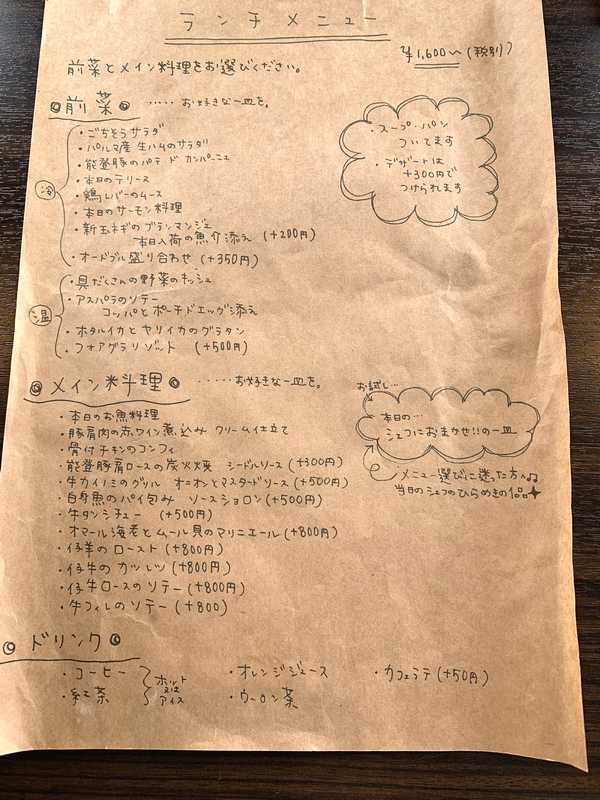 ランチメニュー
¥1,600〜(税別)
前菜とメイン料理をお選びください。
◎前菜◎ ・・・・・ お好きな一皿を。
・スープ・パン
ついてます
・デザートは
+300円で
つけられます
冷
・ごちそうサラダ
・パルマ産 生ハムのサラダ
・能登豚のパテ ド カンパーニュ
・本日のテリーヌ
・鶏レバーのムース
・本日のサーモン料理
・新玉ネギのブランマンジェ
本日入荷の魚介添え (+200円)
・オードブル盛り合わせ (+350円)
温
・具だくさんの野菜のキッシュ
・アスパラのソテー
コッパとポーチドエッグ添え
・ホタルイカとヤリイカのグラタン
・フォアグラリゾット (+500円)
◎メイン料理◎ ・・・・・お好きな一皿を。
・本日のお魚料理
・豚肩肉の赤ワイン煮込み クリーム仕立て
・骨付チキンのコンフィ
・能登豚肩ロースの炭火焼 シードルソース (+300円)
・牛カイノミのグリル オニオンとマスタードソース (+500円)
・白身魚のパイ包み ソースショロン (+500円)
・牛タンシチュー (+500円)
・オマール海老とムール貝のマリニエール (+800円)
・仔羊のロースト (+800円)
・仔牛のカツレツ (+800円)
・仔牛ロースのソテー (+800円)
・牛フィレのソテー (+800)
お試し…
本日の…
シェフにおまかせ!!の一皿
メニュー選びに迷った方へ♫
当日のシェフのひらめきの1品✦
◎ドリンク◎
・コーヒー
・紅茶
ホット
又は
アイス
・オレンジジュース
・ウーロン茶
・カフェラテ(+50円)